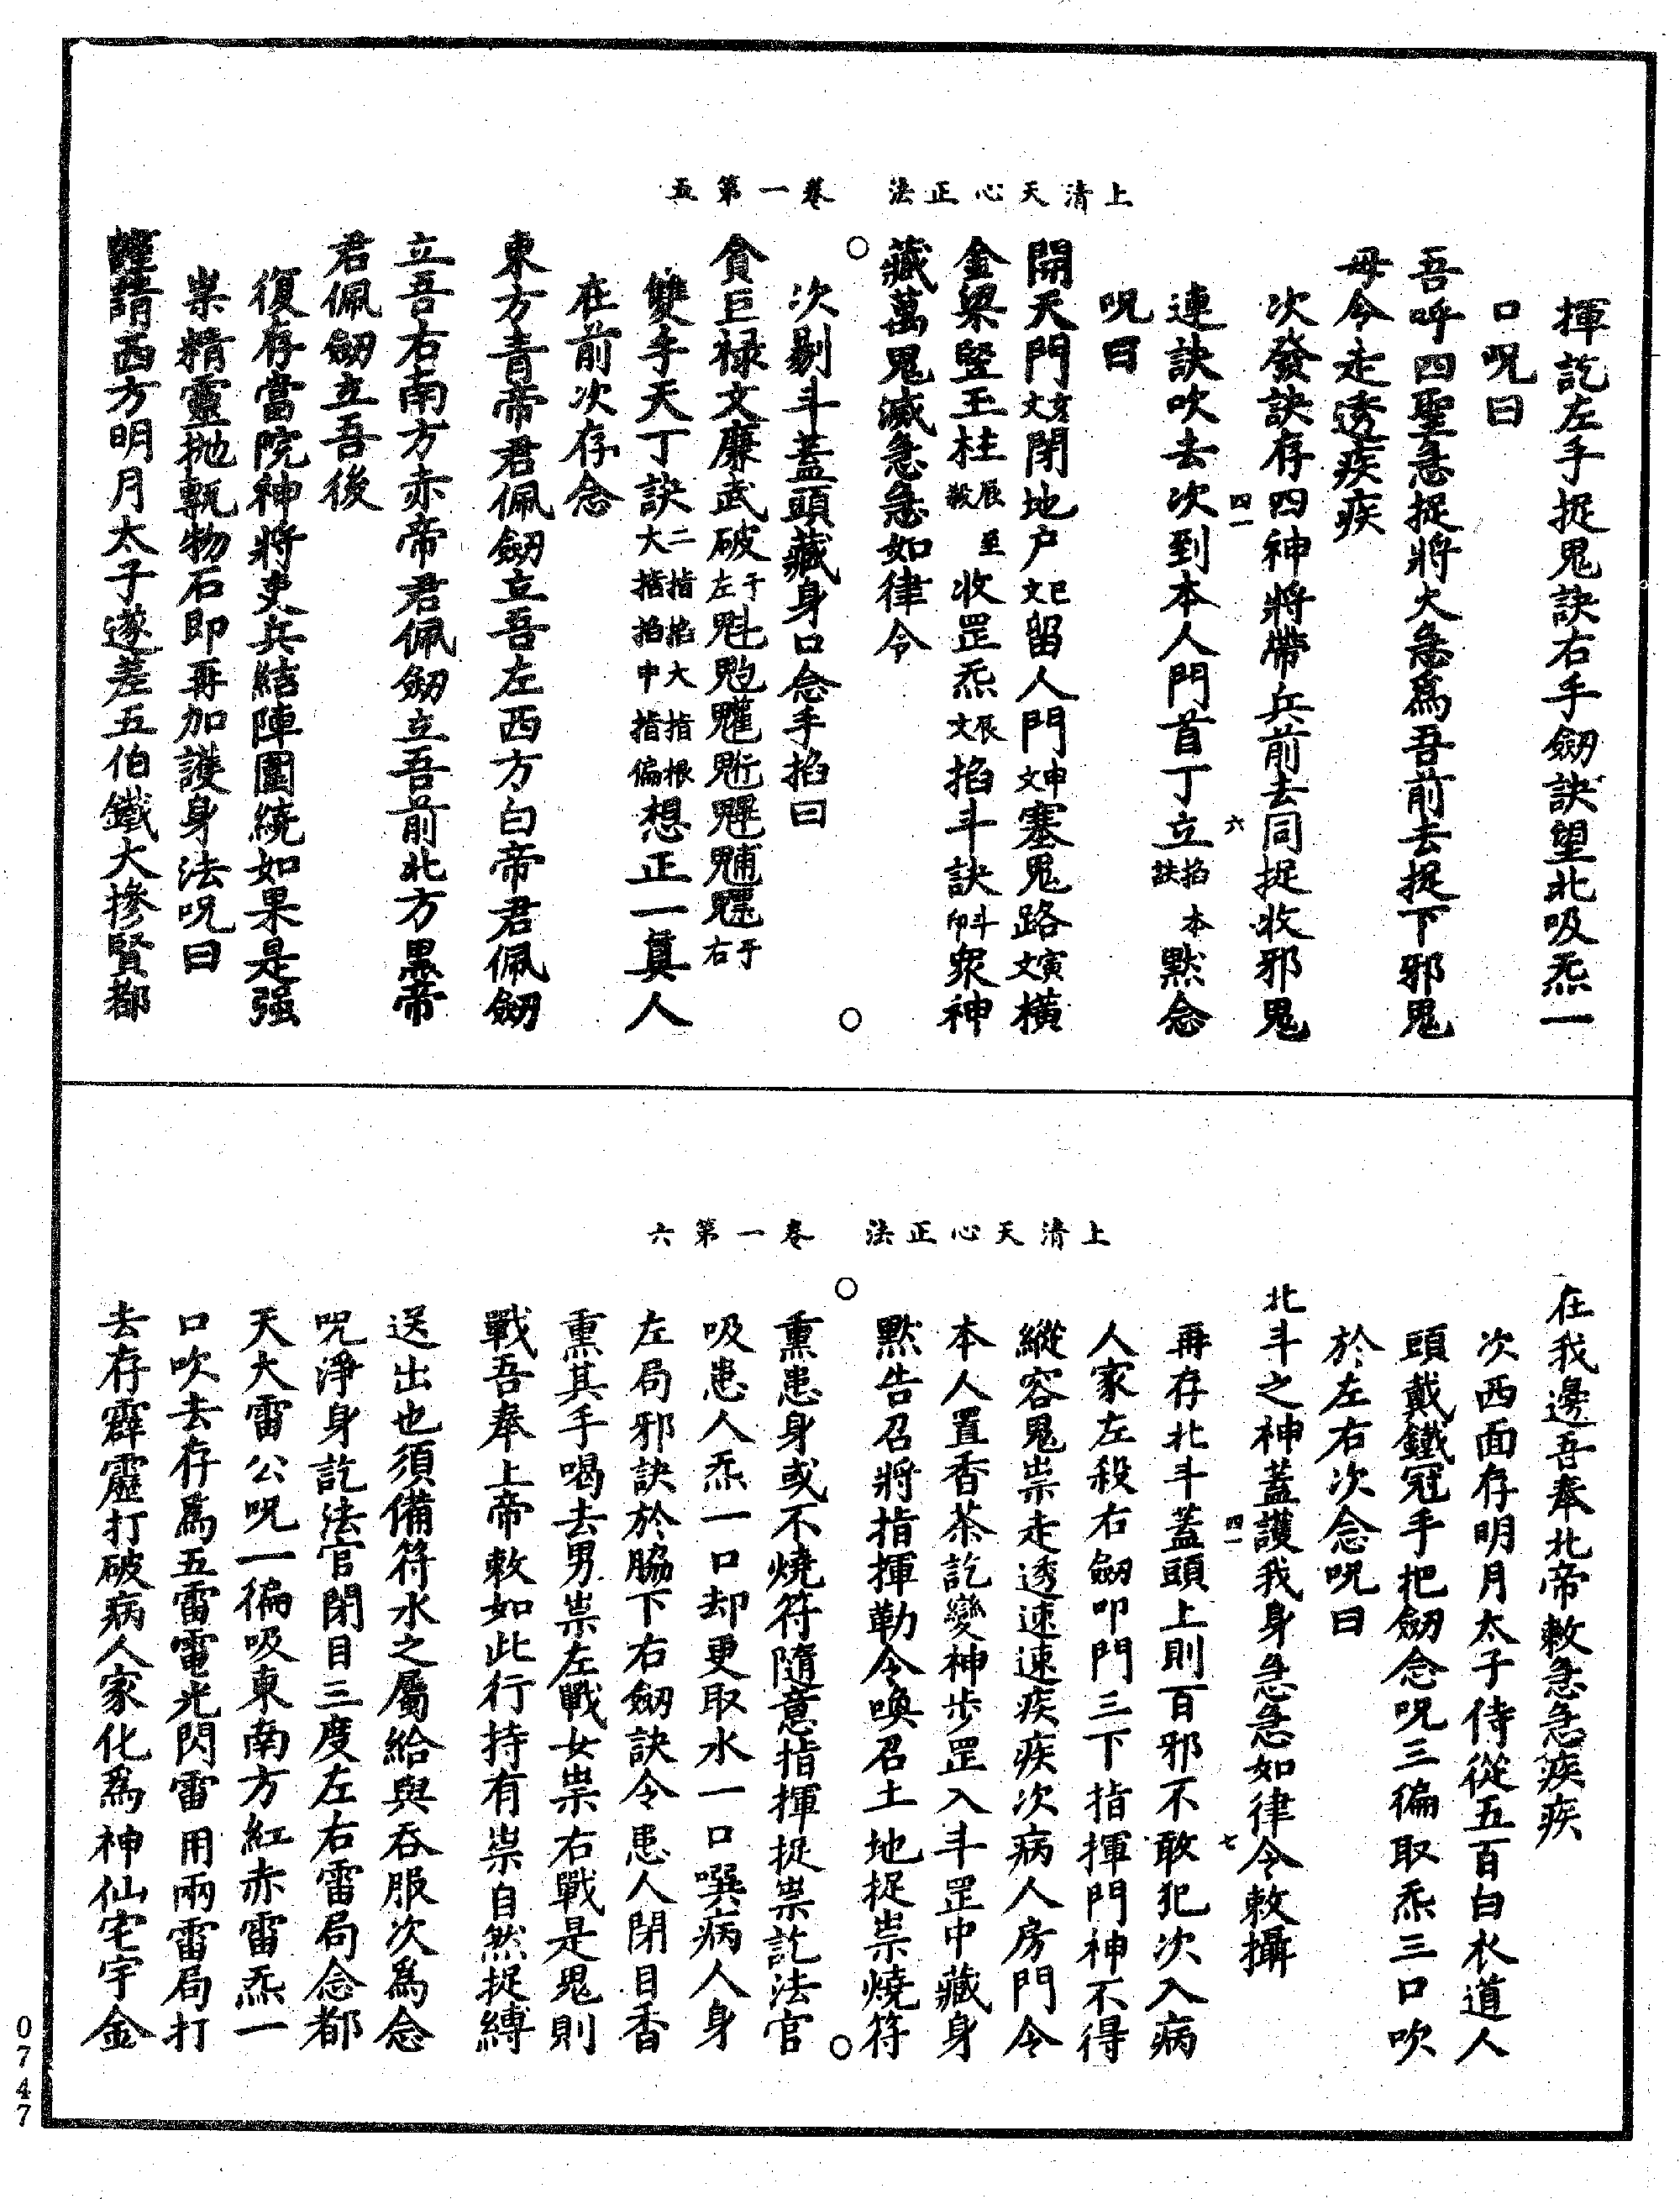 上清天心正法　卷一第五
揮訖左手捉鬼訣右手劒訣望北吸炁一
口呪曰
吾呼四聖急捉將火急爲吾前去捉下邪鬼
毋令走透疾疾
次發訣存四神將帶兵前去同捉收邪鬼
四一　六
連訣吹去次到本人門首丁立掐本訣默念
呪曰
開天門亥文閉地户巳文留人門申文塞鬼路寅文橫
金梁竪玉柱辰至殺收罡炁辰文掐斗訣斗印衆神
藏萬鬼滅急急如律令
次剔斗蓋頭藏身口念手掐曰
貪巨祿文廉武破于左魁䰢䰡魒䰣䰤䰥于右
雙手天丁訣二指掐大指根大指掐中指偏想正一真人
在前次存念
東方青帝君佩劒立吾左西方白帝君佩劒
立吾右南方赤帝君佩劒立吾前北方黑帝
君佩劒立吾後
復存當院神將吏兵結陣圍繞如果是强
祟精靈抛甎物石即再加護身法呪曰
謹請西方明月太子遂差五伯鐵大摻賢都
上清天心正法　卷一第六
在我邊吾奉北帝敕急急疾疾
次西面存明月太子侍從五百白衣道人
頭戴鐵冠手把劒念呪三徧取炁三口吹
於左右次念呪曰
北斗之神蓋護我身急急如律令敕攝
四一　七
再存北斗蓋頭上則百邪不敢犯次入病
人家左殺右劒叩門三下指揮門神不得
縱容鬼祟走透速速疾疾次病人房門令
本人置香茶訖變神步罡入斗罡中藏身
默告召將指揮勒令喚召土地捉祟燒符
熏患身或不燒符隨意指揮捉祟訖法官
吸患人炁一口却更取水一口噀病人身
左局邪訣於脇下右劒訣令患人閉目香
熏其手喝去男祟左戰女祟右戰是鬼則
戰吾奉上帝敕如此行持有祟自然捉縛
送出也須備符水之屬給與吞服次爲念
呪淨身訖法官閉目三度左右雷局念都
天大雷公呪一徧吸東南方紅赤雷炁一
口吹去存爲五雷電光閃雷用兩雷局打
去存霹靂打破病人家化爲神仙宅宇金
0747